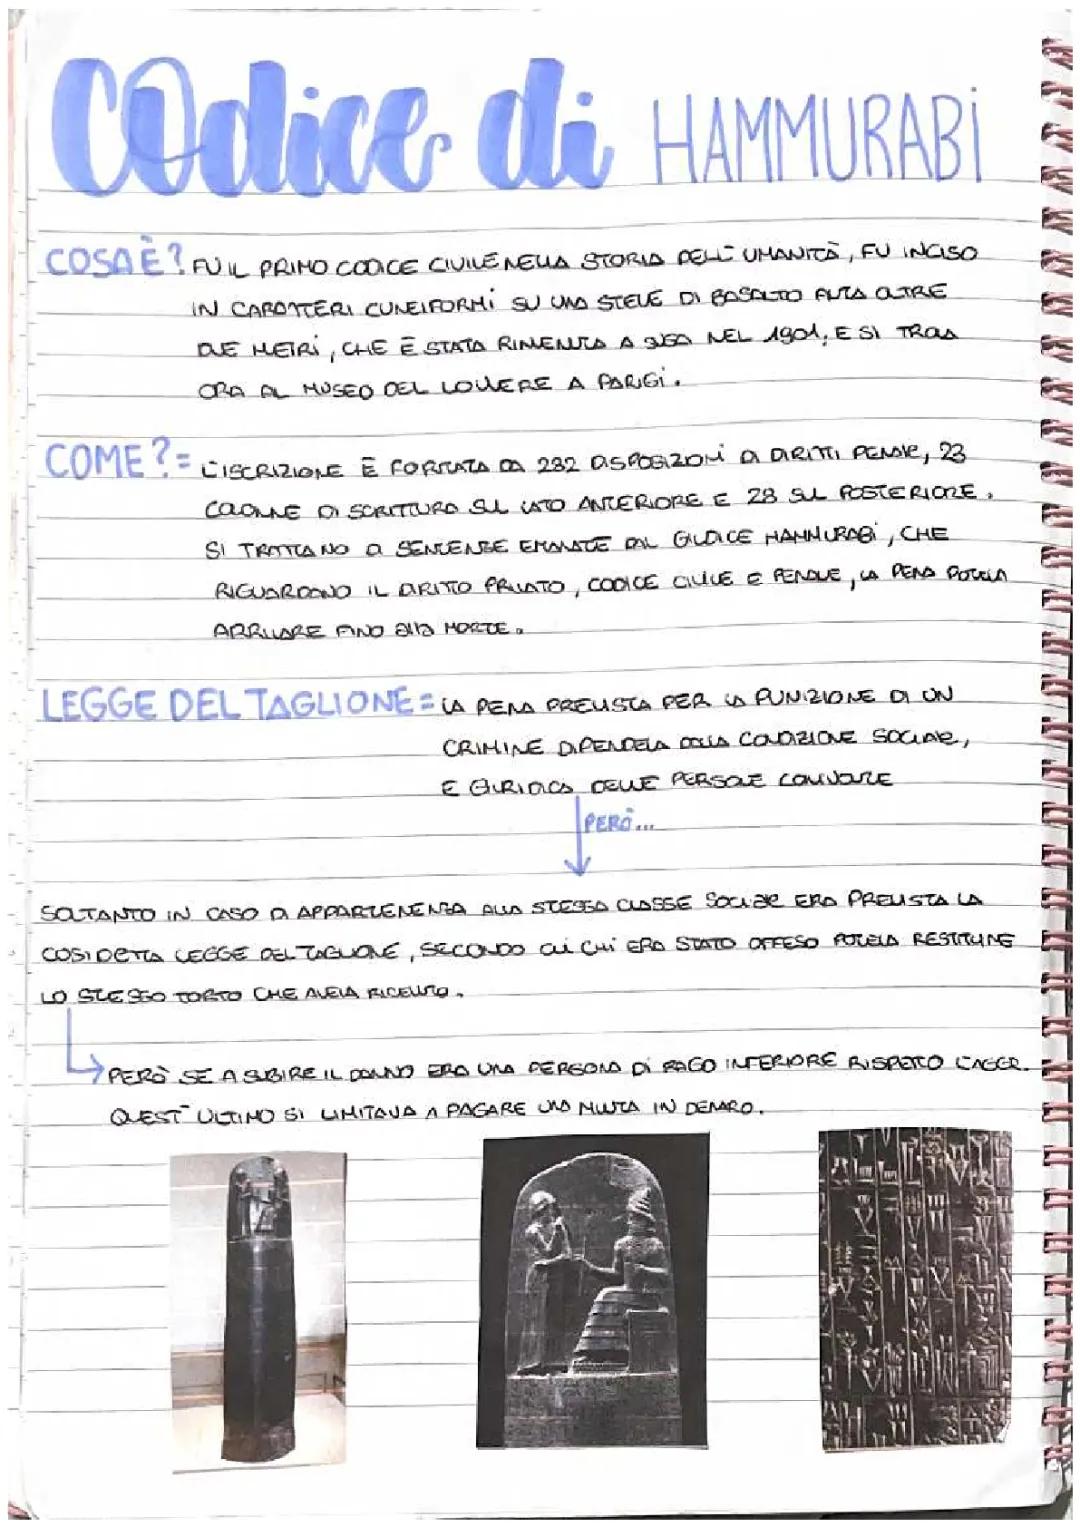 Codice di HAMMURABi
COSA È? FU IL PRIMO CODICE CIVILE NELLA STORIA DELL'UMANITÀ, FU INCISO
IN CARATTERI CUNEIFORMI SU UNA STELE DI BASALTO ALTA OLTRE
DUE METRI, CHE È STATA RINVENUTA A SUSA NEL 1901, E SI TROVA
ORA AL MUSEO DEL LOUVRE A PARIGI.
COME? = L'ISCRIZIONE È FORMATA DA 282 DISPOSIZIONI DI DIRITTI PENALE, 23
COLONNE DI SCRITTURA SUL LATO ANTERIORE E 28 SUL POSTERIORE.
SI TRATTANO DI SENTENZE EMANATE DAL GIUDICE HAMMURABI, CHE
RIGUARDANO IL DIRITTO PRIVATO, CODICE CIVILE E PENALE, LA PENA POTEVA
ARRIVARE FINO ALLA MORTE.
LEGGE DEL TAGLIONE = LA PENA PREVISTA PER LA PUNIZIONE DI UN
CRIMINE DIPENDEVA DALLA CONDIZIONE SOCIALE,
E GIURIDICA DELLE PERSONE COINVOLTE
PERÒ...
SOLTANTO IN CASO DI APPARTENENZA ALLA STESSA CLASSE SOCIALE ERA PREVISTA LA
COSIDETTA LEGGE DEL TAGLIONE, SECONDO CUI CHI ERA STATO OFFESO POTEVA RESTITUIRE
LO STESSO TORTO CHE AVEVA RICEVUTO.
PERÒ SE A SUBIRE IL DANNO ERA UNA PERSONA DI RAGO INFERIORE RISPETTO L'AGGR.
QUEST'ULTIMO SI LIMITAVA A PAGARE UNA MULTA IN DENARO.